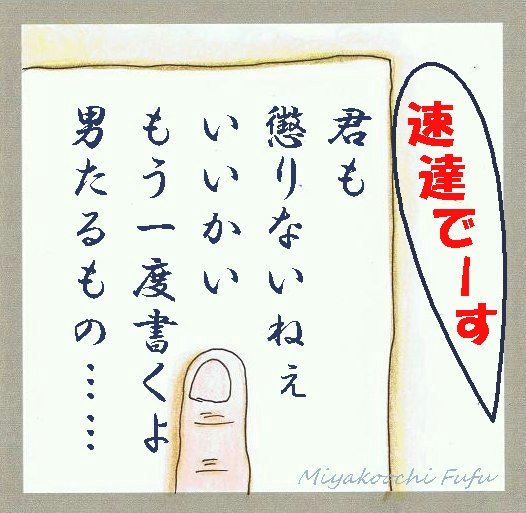 速達でーす
君も
懲りないねぇ
いいかい
もう一度書くよ
男たるもの……
Miyakoochi Fufu